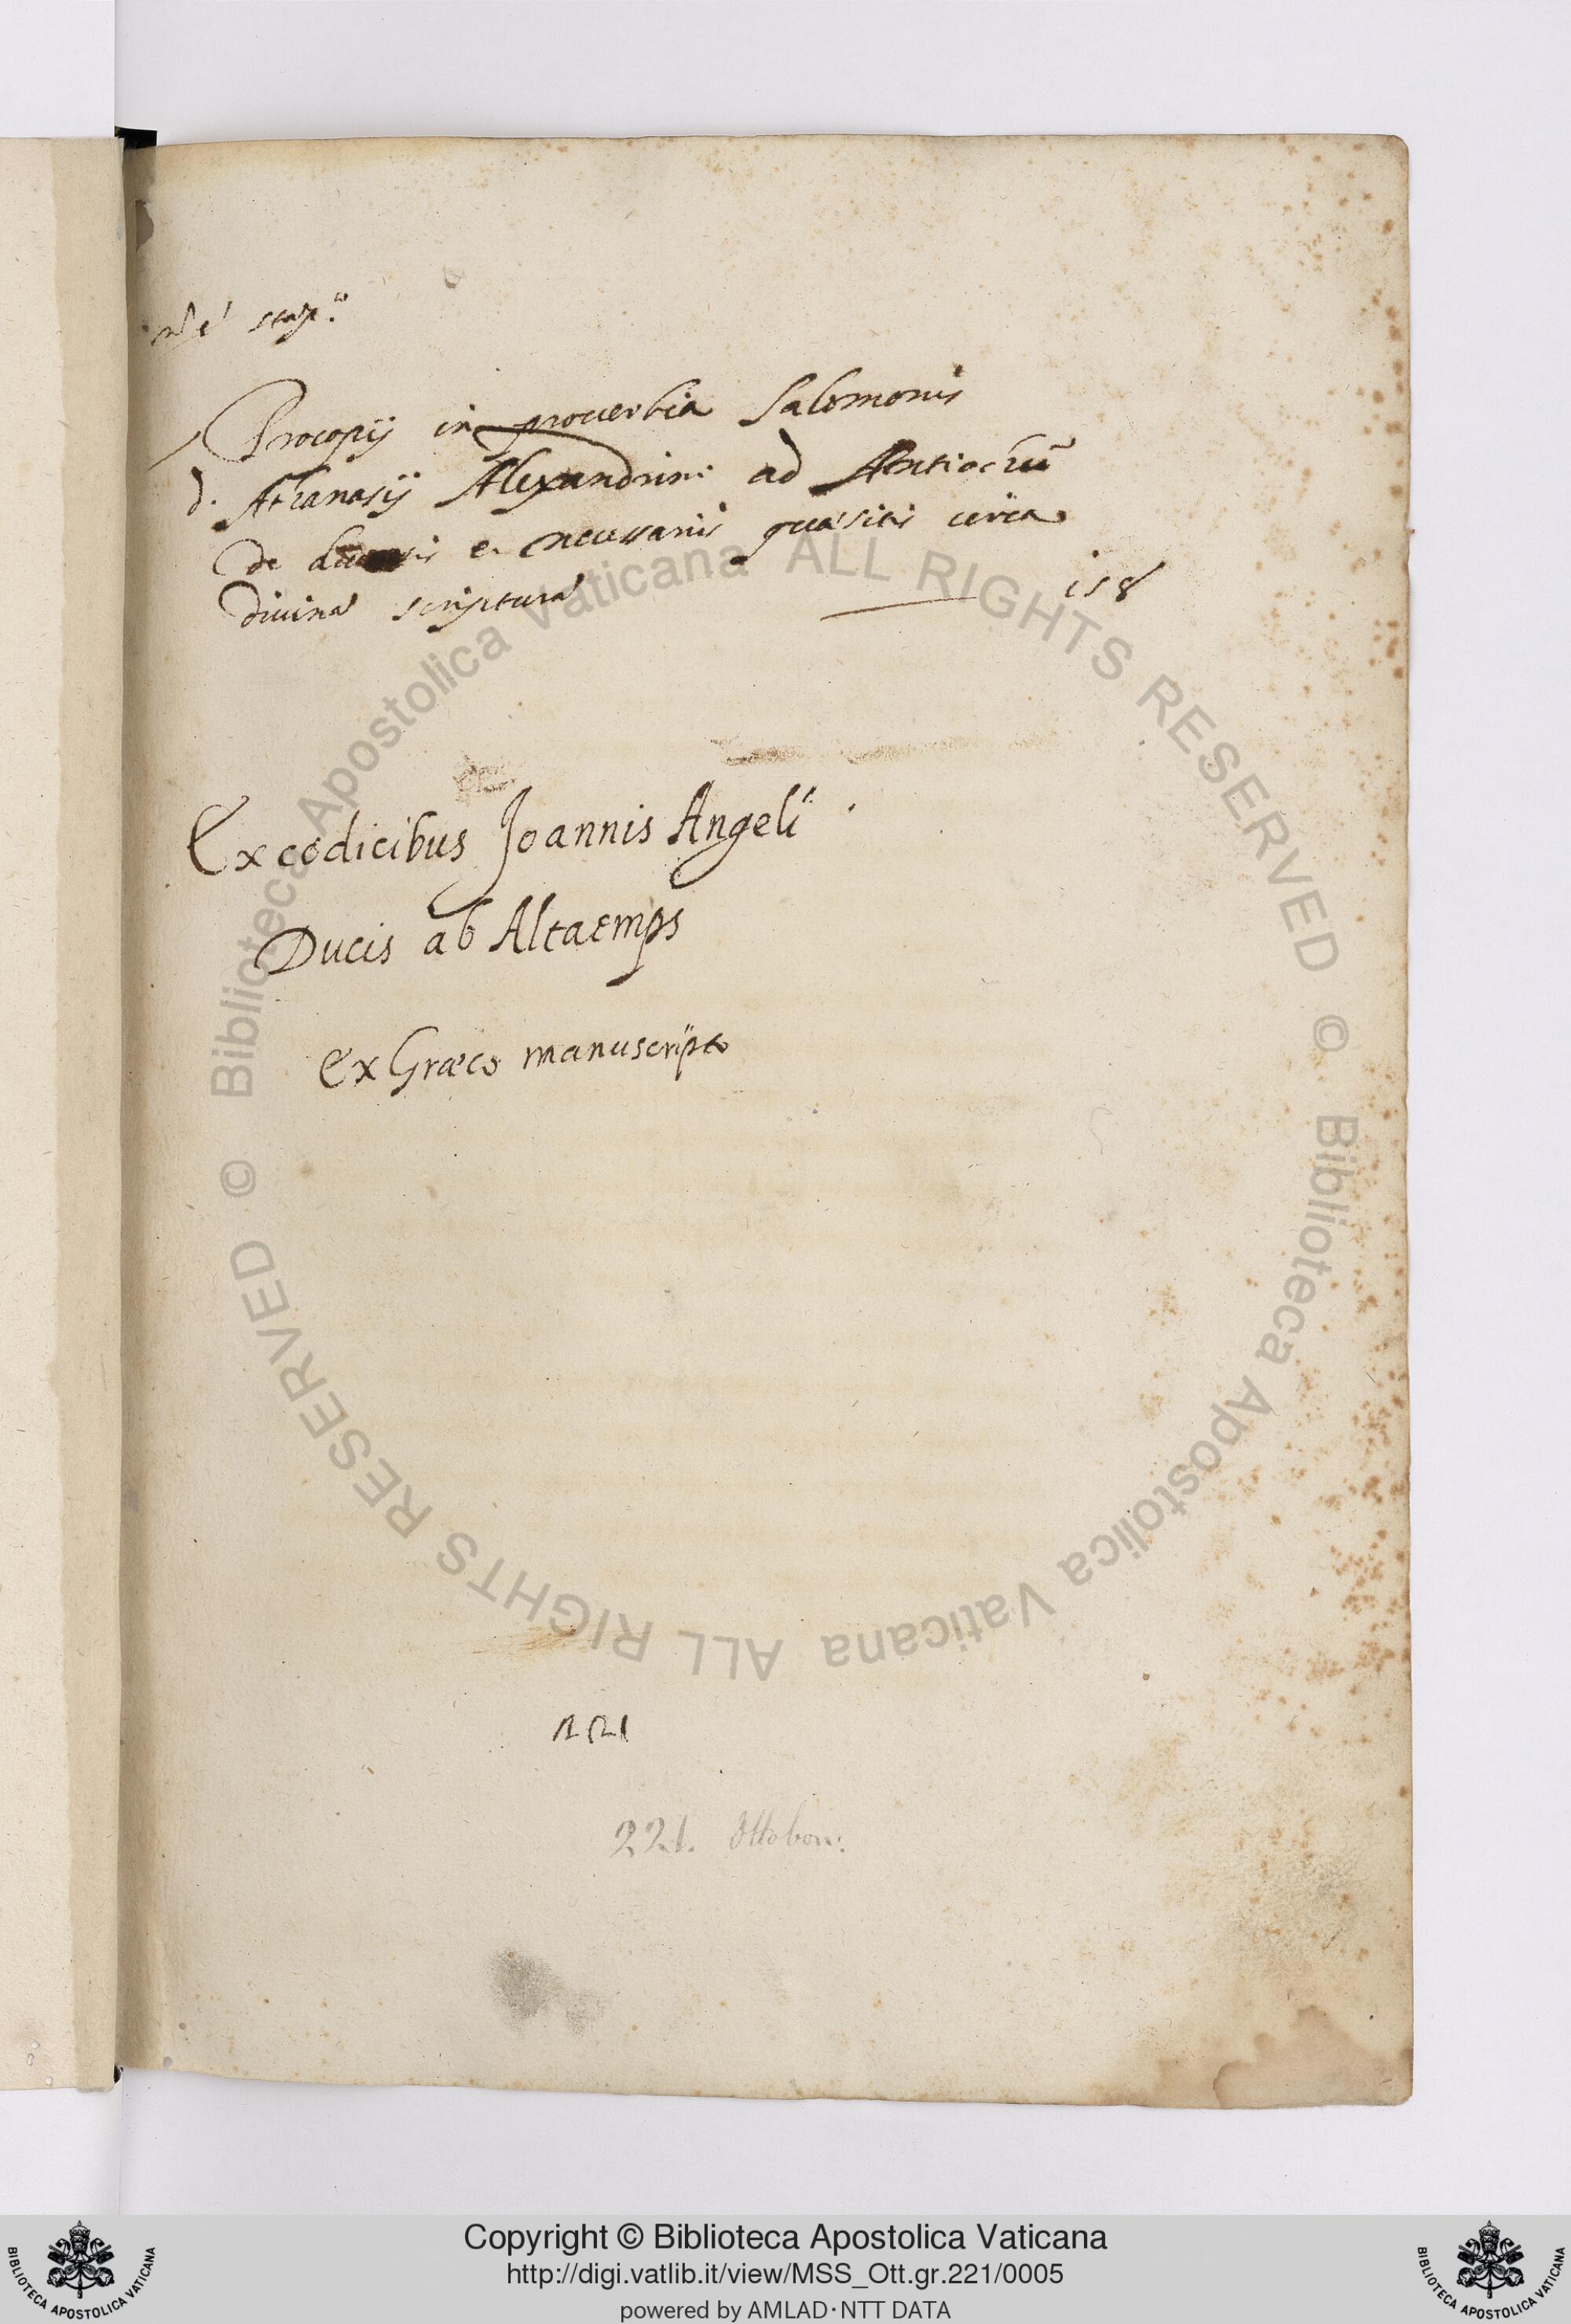 Procopij in prouerbia Salomonis
d. Athanasij Alexandrini ad Antiochũ
De e. necessarijs quæsitis circa
diuina scriptura 158
Ex codicibus Joannis Angeli
Ducis ab Altaemps
Ex Græco manuscripto
221
221. Ottobon:
© Biblioteca Apostolica Vaticana ALL RIGHTS RESERVED
© Biblioteca Apostolica Vaticana ALL RIGHTS RESERVED
Copyright © Biblioteca Apostolica Vaticana
http://digi.vatlib.it/view/MSS_Ott.gr.221/0005
powered by AMLAD·NTT DATA
BIBLIOTECA APOSTOLICA VATICANA
BIBLIOTECA APOSTOLICA VATICANA